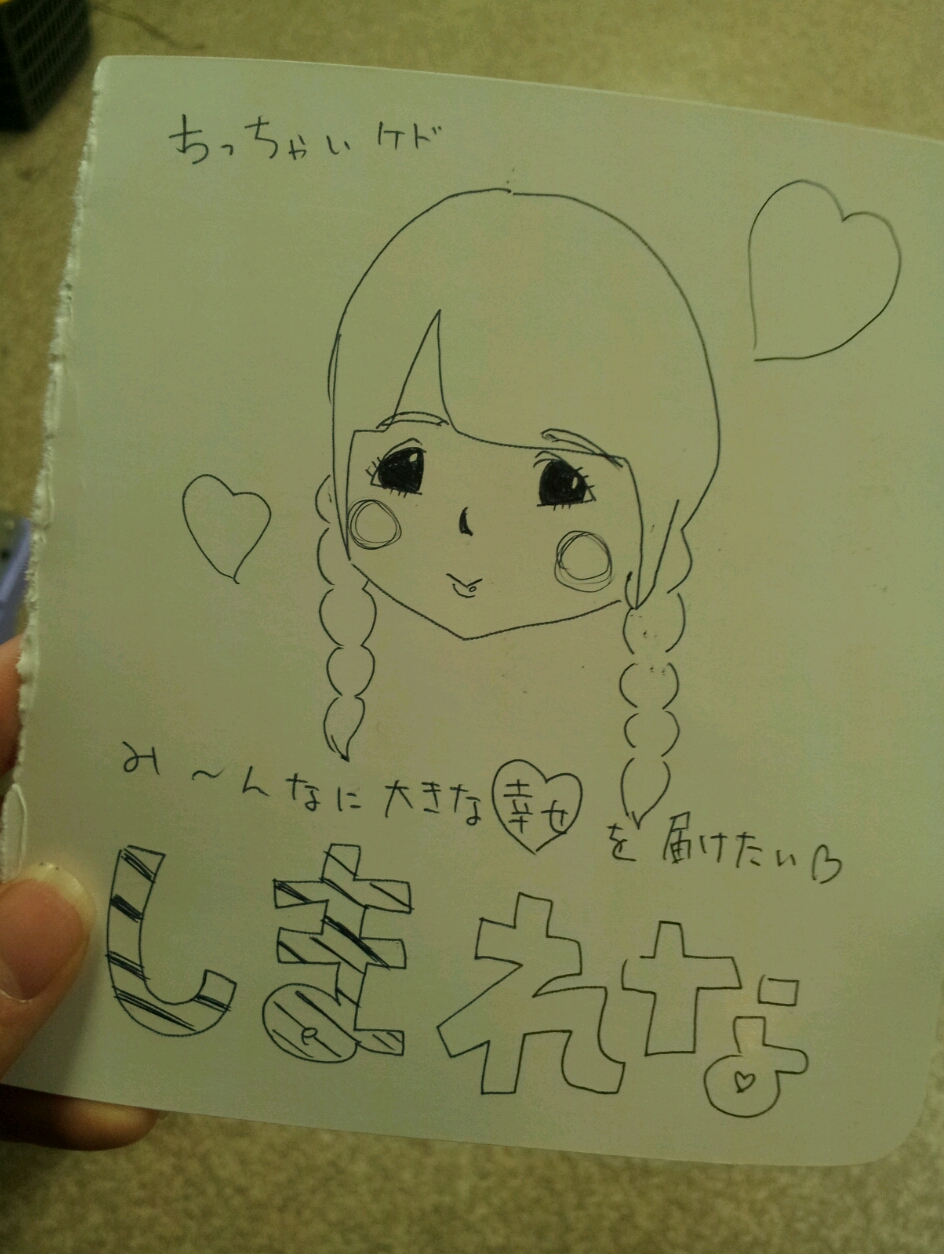 ちっちゃいケド
み〜んなに大きな幸せを届けたい♡
しまれな